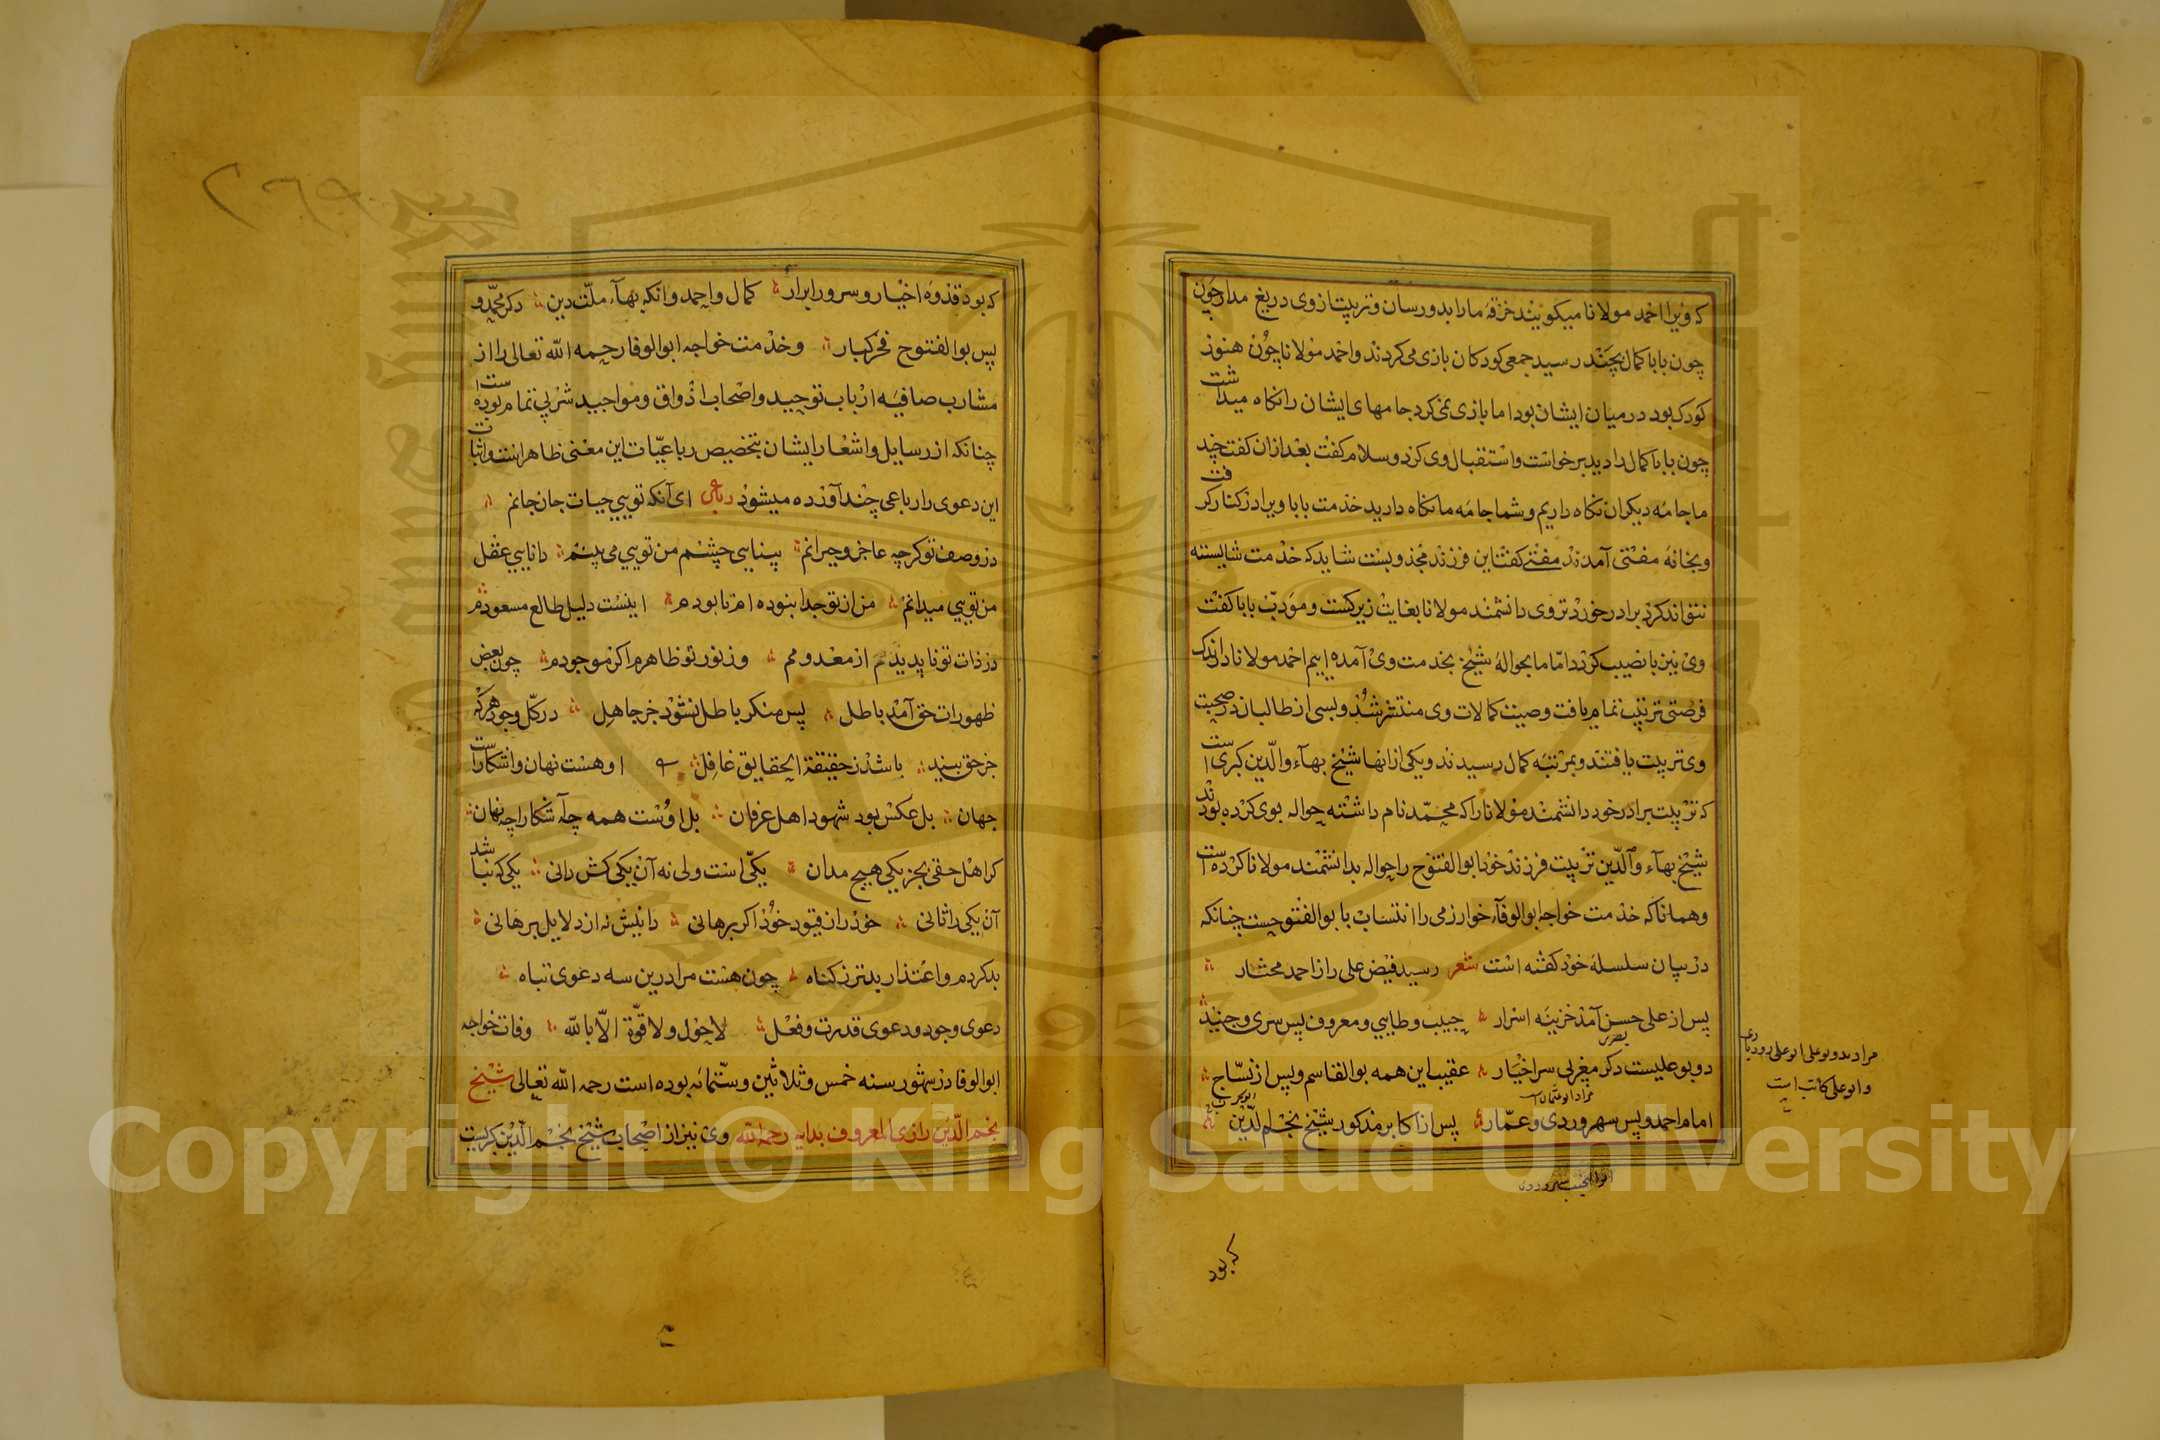 که ویرا احمد مولانا میکویند خرقهٔ مارا بدو رسان و تربیت از وی دریغ مدار چون
چون بابا کمال بجند رسید جمعی کودکان بازی می کردند و احمد مولانا چون هنوز
کودک بود در میان ایشان بود اما بازی نمی کرد جامهای ایشان را نکاه میداشت
چون بابا کمال را دید برخواست و استقبال وی کرد و سلام کفت بعد ازان کفت چند
ما جامه دیکران نکاه داریم و شما جامه ما نکاه دارید خدمت بابا ویرا در کنار کرفت
و بخانهٔ مفتی آمدند مفتی کفت این فرزند مجذوبست شاید که خدمت شایسته
نتواند کرد برادر خوردتر وی دانشمند مولانا بغایت زیرکست و مؤدب بابا کفت
وی نیز با نصیب کردد اما ما بحوالهٔ شیخ بخدمت وی آمده ایم احمد مولانا در اندک
فرصتی تربیت تمام یافت وصیت کمالات وی منتشر شد و بسی از طالبان در صحبت
وی تربیت یافتند و بمرتبه کمال رسیدند و یکی ازانها شیخ بهآء والدین کبری است
که تربیت برادر خود دانشمند مولانا را که محمد نام داشته حواله بوی کرده بودند
شیخ بهآء والدین تربیت فرزند خود ابوالفتوح را حواله بدانشمند مولانا کرده است
و همانا که خدمت خواجه ابوالوفآء خوارزمی را انتساب با بوالفتوحست چنانکه
در بیان سلسله خود کفته است شعر رسید فیض علی را ز احمد مختار
پس از علی حسن آمد خزینه اسرار حبیب و طایی و معروف پس سری و جنید
بصری
دو بوعلیست دکر مغربی سر اخیار عقیب این همه بوالقاسم و پس از نساج
مراد ابوعثمان است
ابوبکر
امام احمد و پس سهروردی و عمار پس از اکابر مذکور شیخ نجم الدین
مراد بدو بوعلی ابوعلی رودباری
و ابوعلی کاتب است
ابوالنجیب سهروردی
که بود
که بود قدوه اخیار و سرور ابرار کمال واحمد و انکه بهآء ملت دین دکر محمد و
پس بوالفتوح فخر کبار و خدمت خواجه ابوالوفا رحمه الله تعالی را از
مشارب صافیه ارباب توحید و اصحاب اذواق و مواجید شربی تمام بوده است
چنانکه از رسایل و اشعار ایشان بتخصیص رباعیات این معنی ظاهر است و اثبات
این دعوی را رباعی چند آورده میشود رباعی ای آنکه تویی حیات جان جانم
در وصف تو کرچه عاجز و حیرانم بینایی چشم من تویی می بینم دانایی عقل
من تویی میدانم من از تو جدا نبوده ام تا بودم اینست دلیل طالع مسعودم
در ذات تو ناپدیدم از معدومم وز نور تو ظاهرم اکر موجودم چون بعض
ظهورات حق آمد باطل پس منکر باطل نشود جز جاهل در کل وجود هر که
جز حق بیند باشد ز حقیقة الحقایق غافل او هست نهان و اشکاراست
جهان بل عکس بود شهود اهل عرفان بل اوست همه چه آشکارا چه نهان
کر اهل حقی بجز یکی هیچ مدان یکی است ولی نه آن یکی کش رانی یکی که نباشد
آن یکی را ثانی خود را ز قیود خود اکر برهانی دانیش نه از دلایل برهانی
بد کردم و اعتذار بدتر ز کناه چون هست مرا درین سه دعوی تباه
دعوی وجود و دعوی قدرت و فعل لاحول ولا قوة الا بالله وفات خواجه
ابوالوفا در شهور سنه خمس و ثلاثین و ستمائه بوده است رحمه الله تعالی شیخ
نجم الدین رازی المعروف بدایه رحمه الله وی نیز از اصحاب شیخ نجم الدین کبریست
٢٦٩
King Saud University
1957
Copyright © King Saud University